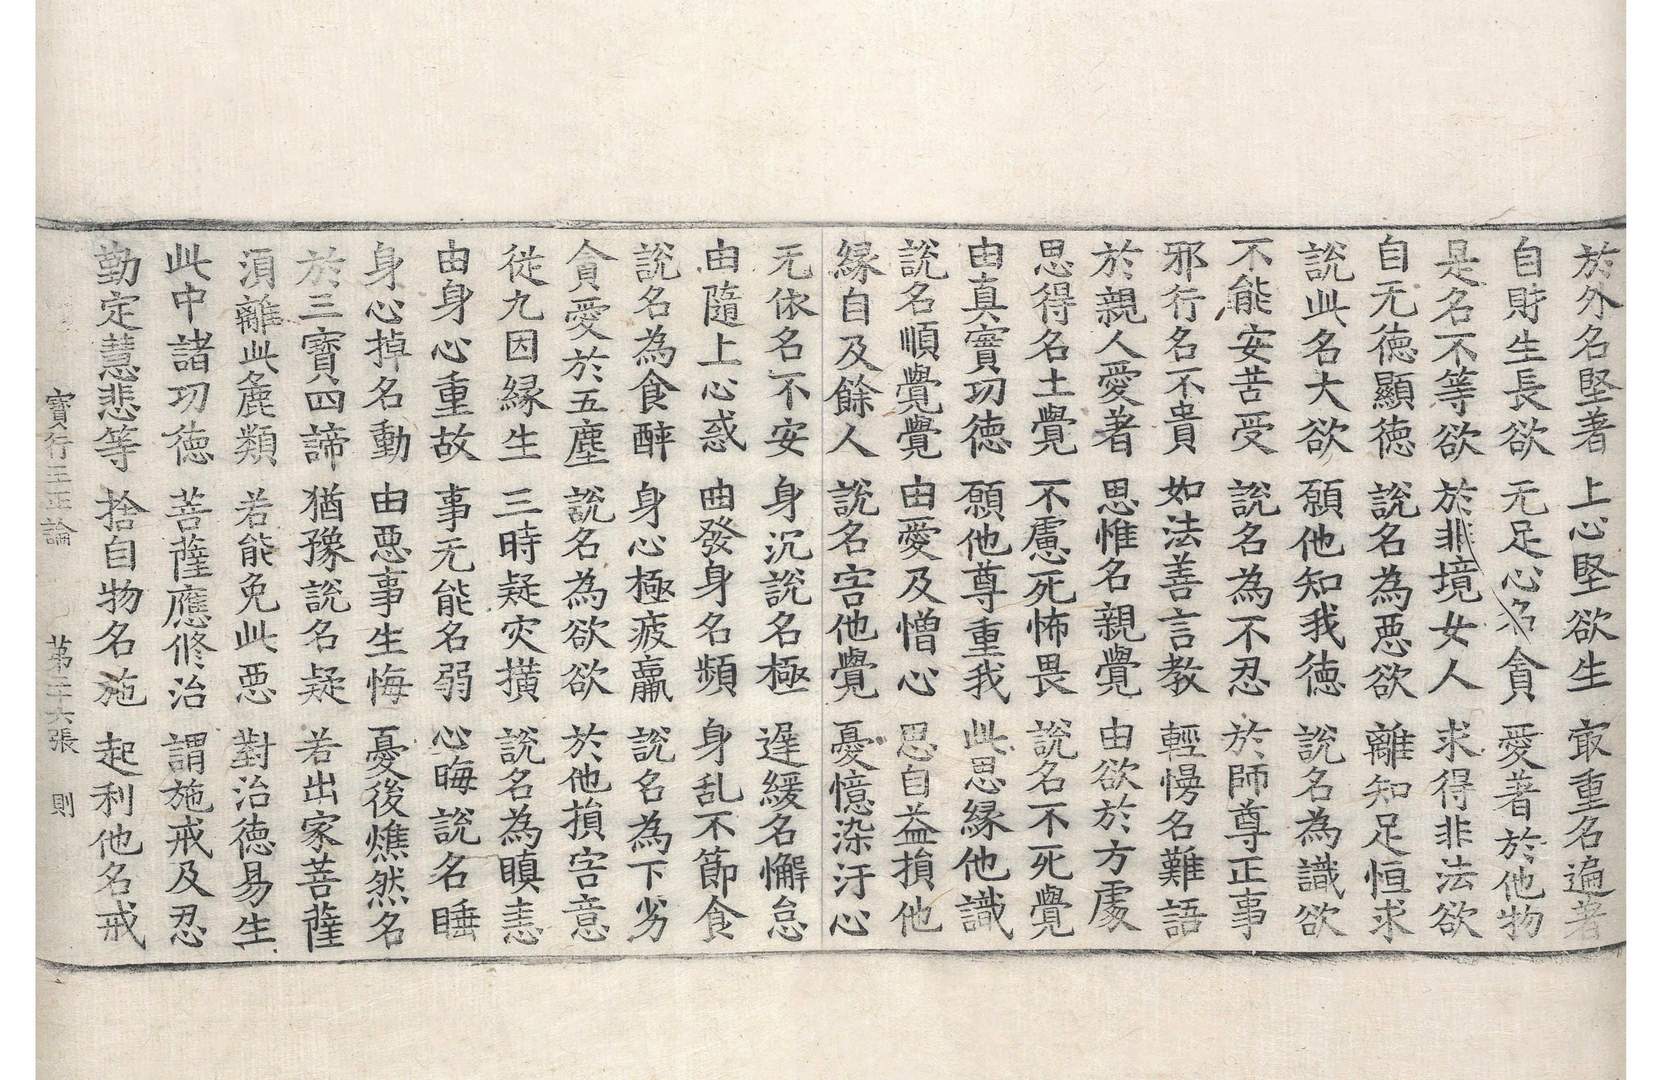 於外名堅著 上心堅欲生 㝡重名遍著
自財生長欲 无足心名貪 愛著於他物
是名不等欲 於非境女人 求得非法欲
自无徳顯徳 說名為惡欲 離知足恒求
說此名大欲 願他知我徳 說名為識欲
不能安苦受 說名為不忍 於師尊正事
邪行名不貴 如法善言教 輕慢名難語
於親人愛著 思惟名親覺 由欲於方處
思得名土覺 不慮死怖畏 說名不死覺
由真實功徳 願他尊重我 此思緣他識
說名順覺覺 由愛及憎心 思自益損他
緣自及餘人 說名害他覺 憂憶染汙心
无依名不安 身沉說名極 遲緩名懈怠
由隨上心惑 曲發身名頻 身乱不節食
說名為食醉 身心極疲羸 說名為下劣
貪愛於五塵 說名為欲欲 於他損害意
從九因緣生 三時疑灾橫 說名為瞋恚
由身心重故 事无能名弱 心晦說名睡
身心掉名動 由惡事生悔 憂後燋然名
於三寶四諦 猶豫說名疑 若出家菩薩
須離此麁類 若能免此惡 對治徳易生
此中諸功徳 菩薩應修治 謂施戒及忍
勤定慧悲等 捨自物名施 起利他名戒
寶行王正論 苐二十六張 則